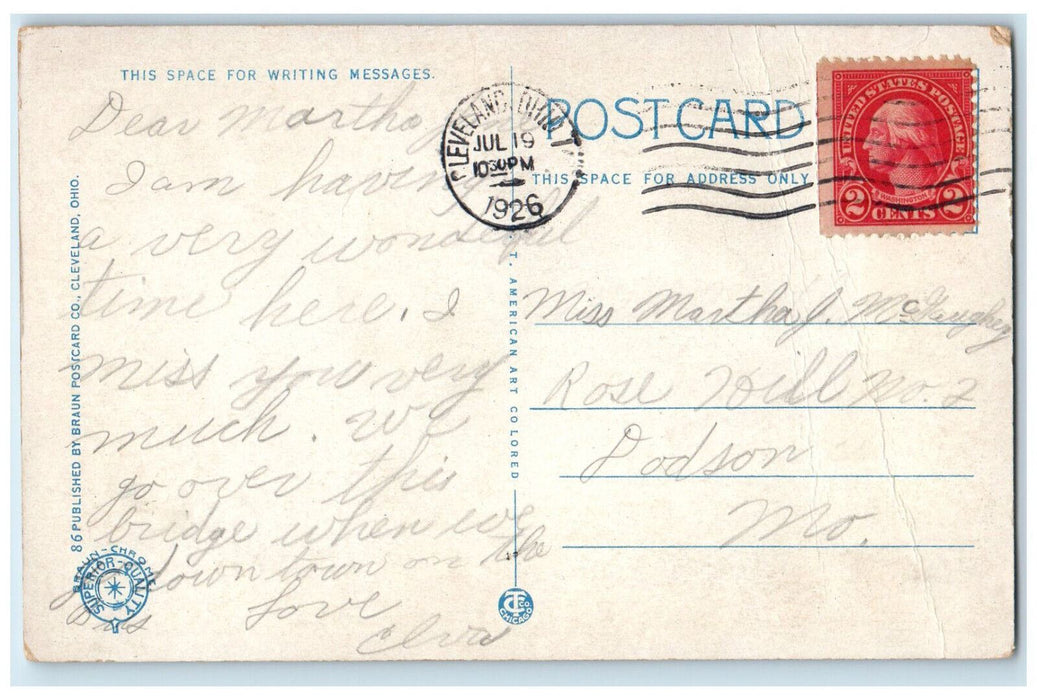 THIS SPACE FOR WRITING MESSAGES.
Dear Martha
I am having
a very wonderful
time here. I
miss you very
much. We
go over this
bridge when we
go down town on the
Bus
Love
Elva
86 PUBLISHED BY BRAUN POSTCARD CO., CLEVELAND, OHIO.
BRAUN-CHROME
SUPERIOR-QUALITY
CLEVELAND, OHIO
JUL 19
10 30 PM
1926
POST CARD
THIS SPACE FOR ADDRESS ONLY
UNITED STATES POSTAGE
WASHINGTON
2 CENTS 2
T. AMERICAN ART COLORED
Miss Martha J. McGaughey
Rose Hill No. 2
Dodson
Mo.
CHICAGO